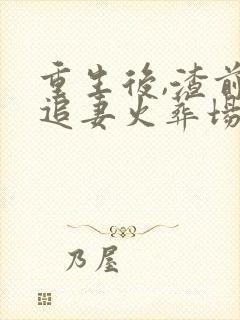 重生後,渣前
追妻火葬場
乃屋